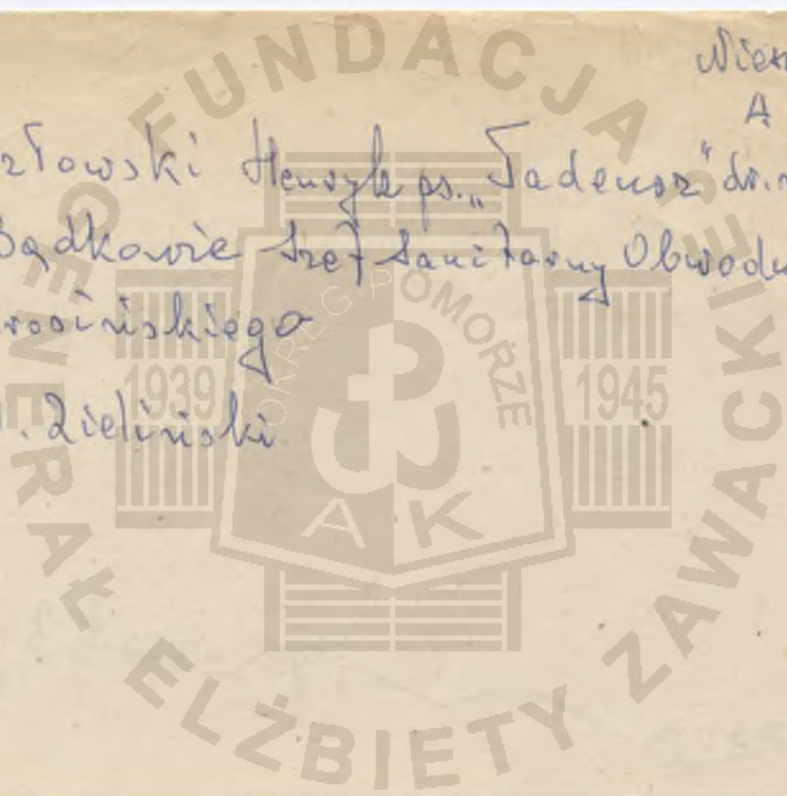 A
Henryk ps. „Tadeusz" dr.
Bądkowie Szef Sanitarny Obwodu
Zieliński
FUNDACJA GENERAŁ ELŻBIETY ZAWACKIEJ
OKRĘG POMORZE
1939 1945
A K